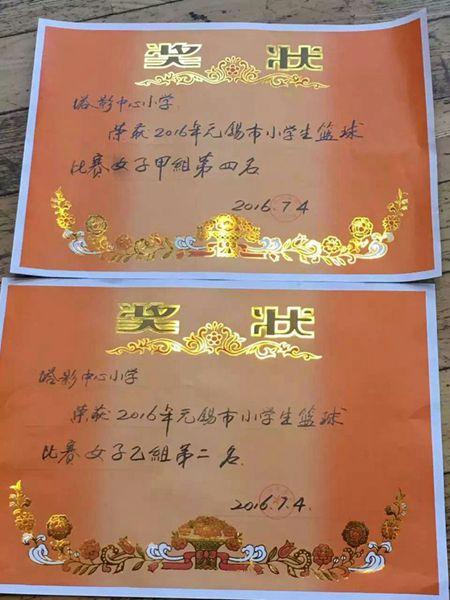 奖状
塔影中心小学
荣获2016年无锡市小学生篮球
比赛女子甲组第四名
2016.7.4
奖状
塔影中心小学
荣获2016年无锡市小学生篮球
比赛女子乙组第二名
2016.7.4